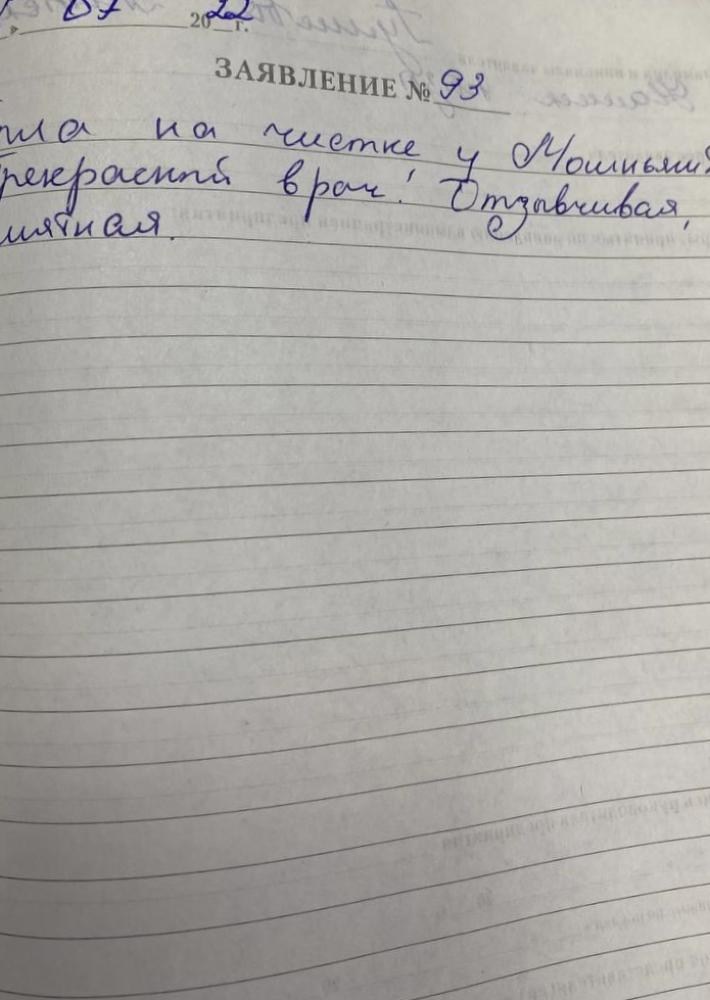 07 2022 г.
ЗАЯВЛЕНИЕ № 93
ла на чистке у
прекрасной врач! Отзывчивая,
мятная.